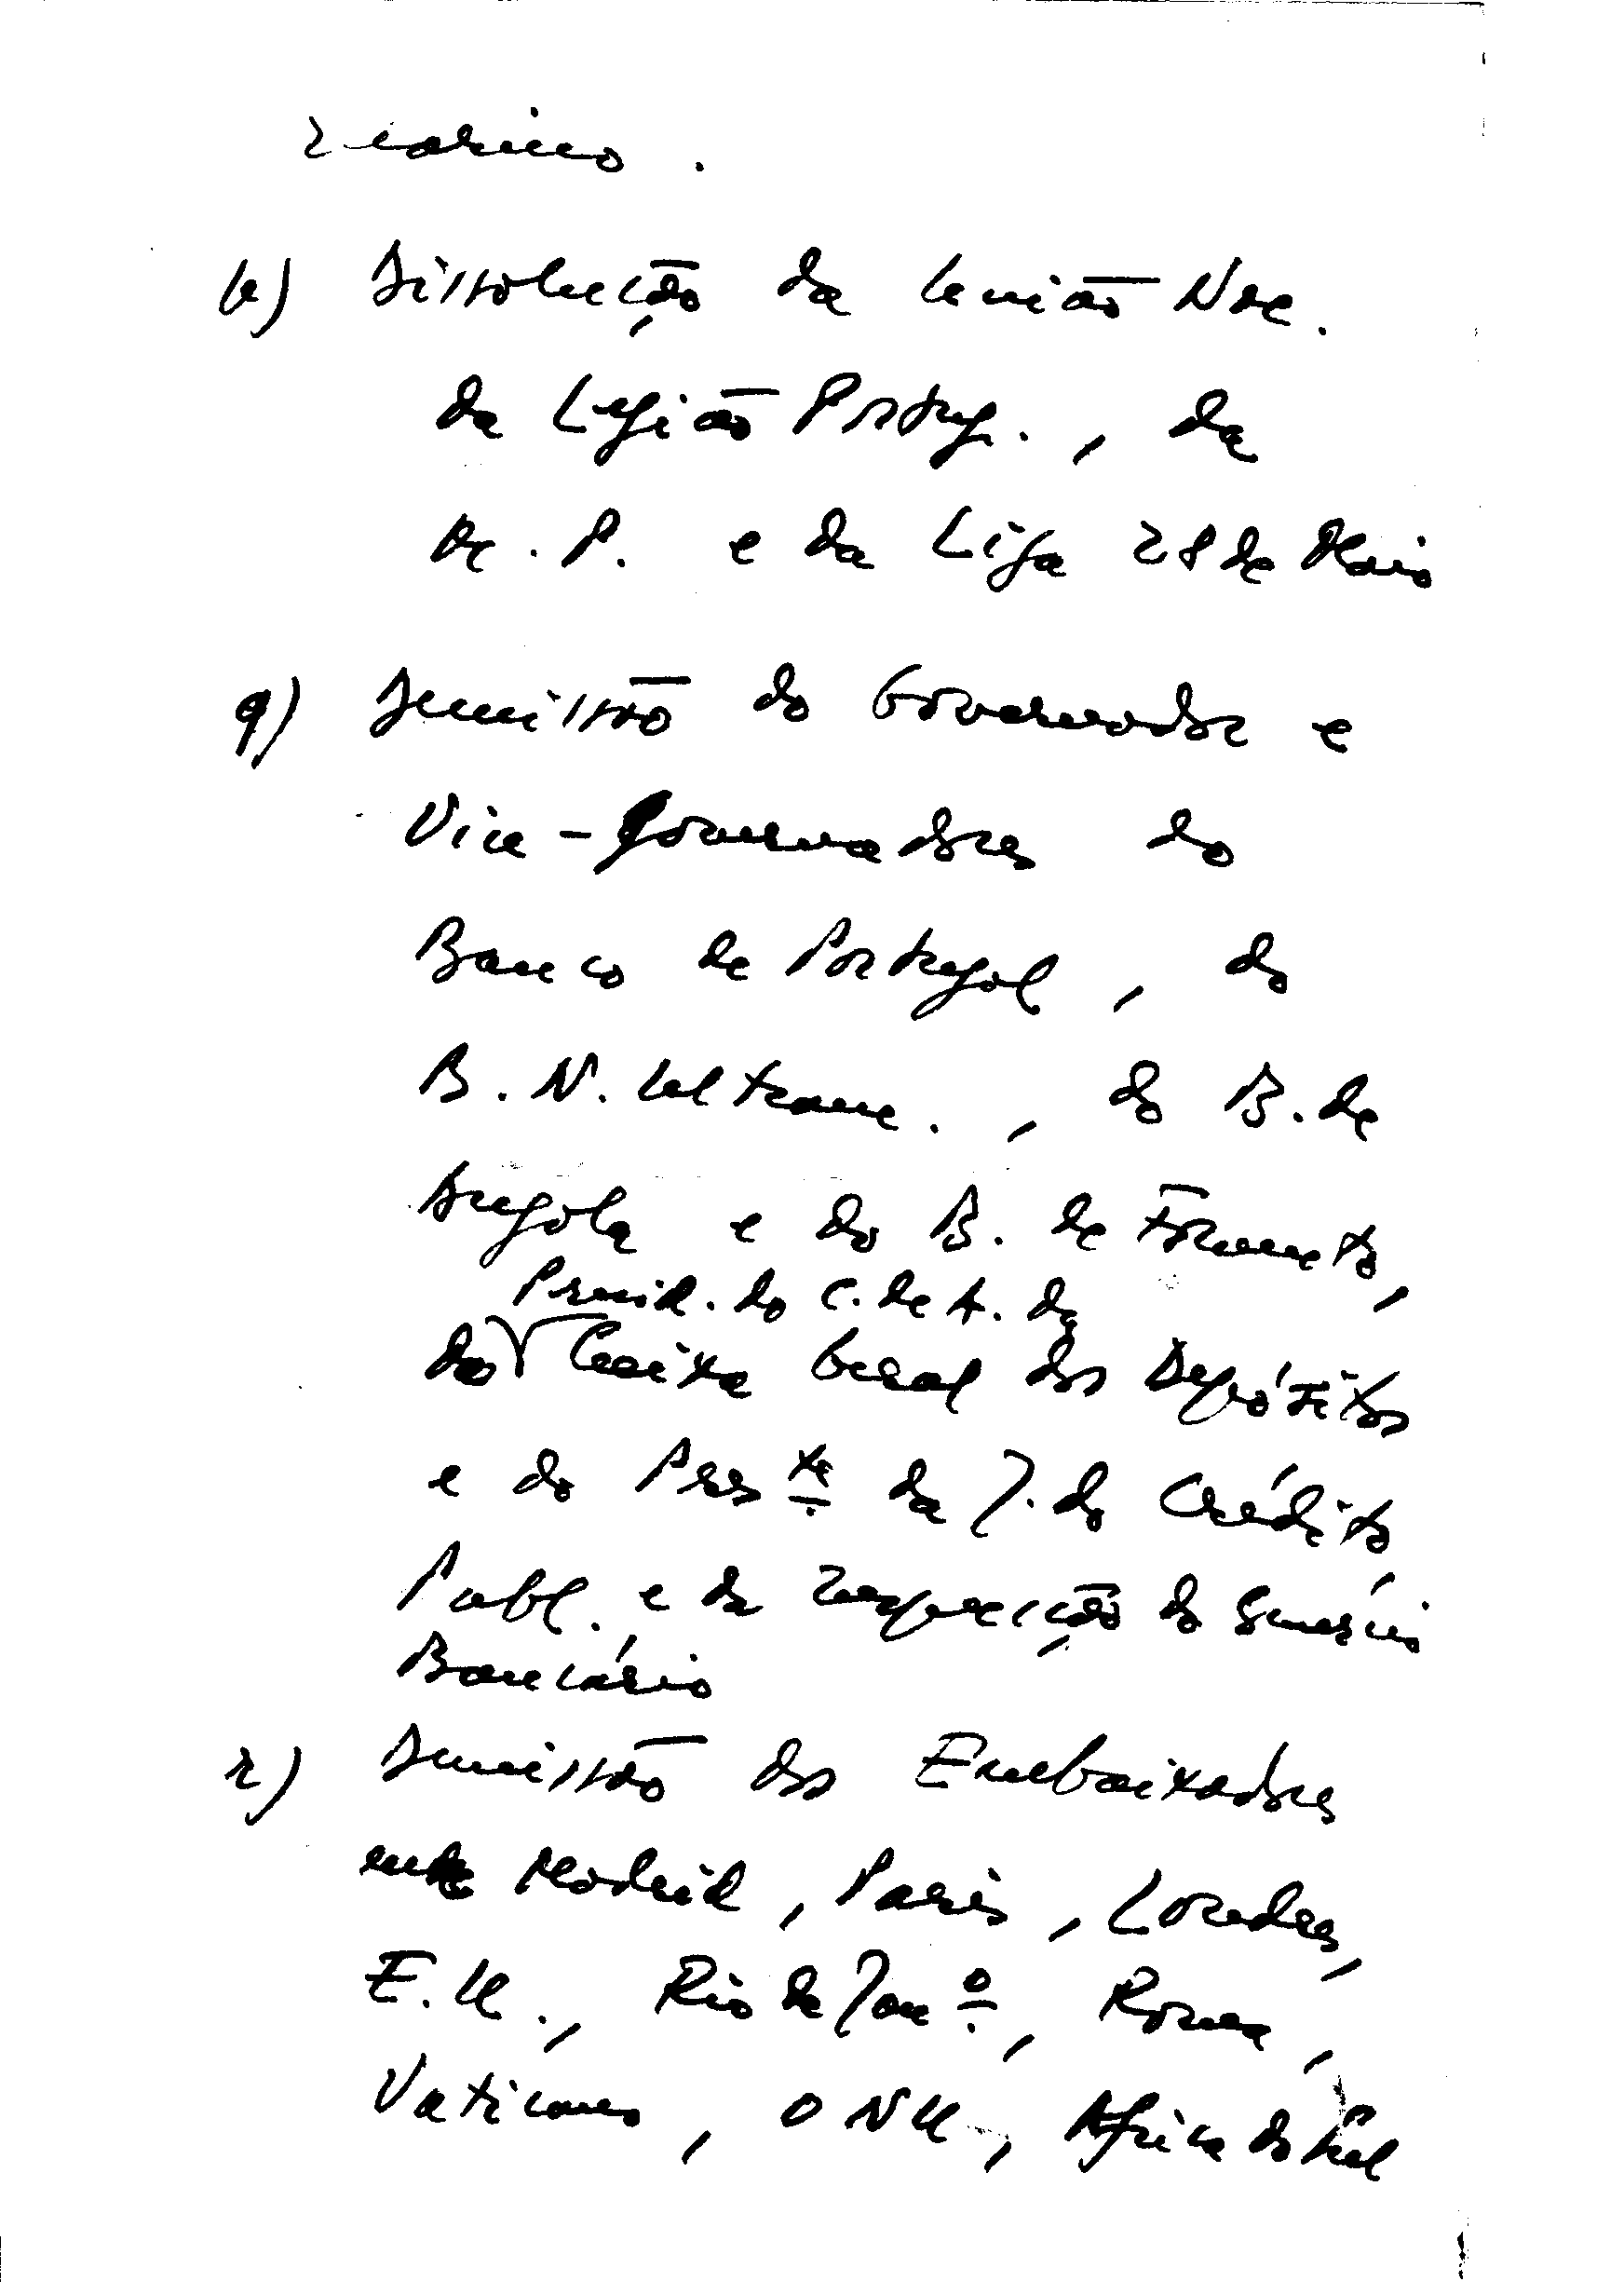 p) Dissolução da União Nac.
da Legião Portug., da
M. P. e da Liga 28 de Maio
q) Demissão do Governador e
Vice-Governadores do
Banco de Portugal, do
B. N. Ultram., do B. de
Angola e do B. de Fomento,
Presid. do C. de A. da
do Caixa Geral dos Depósitos
e do Preste. da J. do Crédito
Publ. e da Inspecção do Comércio
Bancário
r) Demissão dos Embaixadores
em Madrid, Paris, Londres,
E.U., Rio de Janº., Roma,
Vaticano, ONU, Africa do Sul